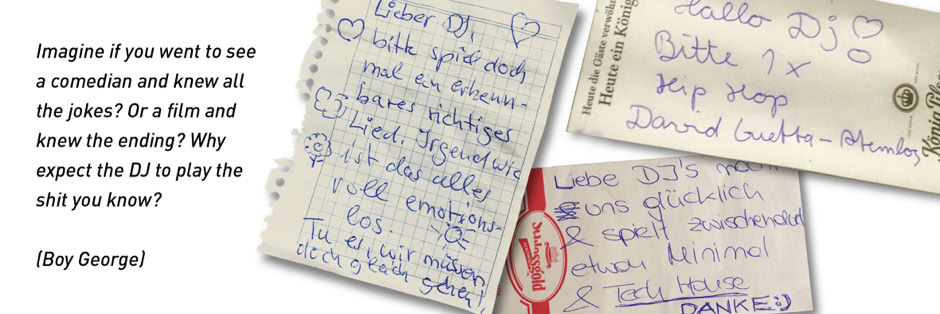 Imagine if you went to see
a comedian and knew all
the jokes? Or a film and
knew the ending? Why
expect the DJ to play the
shit you know?
(Boy George)
Lieber DJ,
bitte spiel doch
mal ein erkenn-
bares richtiges
Lied. Irgendwie
ist das alles
voll emotions-
los.
Tu es, wir müssen
doch gleich gehen!
Heute die Gäste verwöh
Heute ein König
Hallo Dj
Bitte 1x
Hip Hop
David Guetta - Atemlos
König
Liebe DJ's
uns glücklich
& spielt zwischendurch
etwas Minimal
& Tech House
DANKE :)